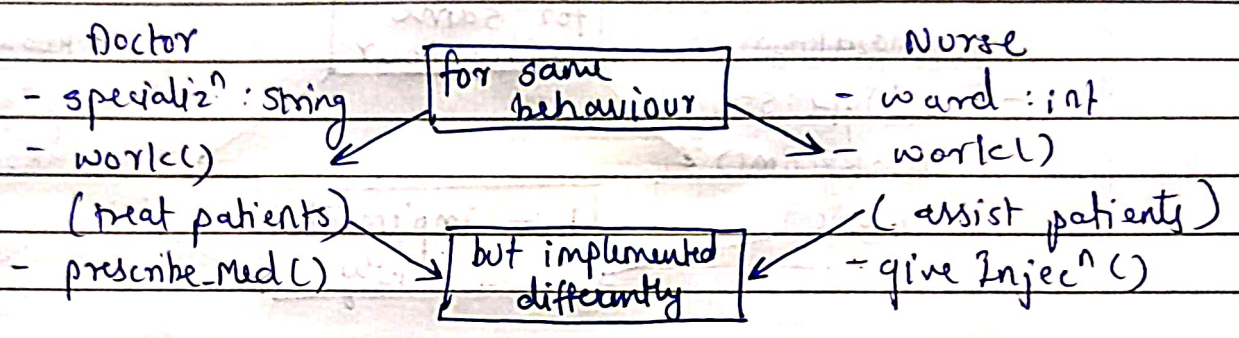 Doctor
- specializⁿ : string
- work()
(treat patients)
- prescribe_Med()
for same
behaviour
but implemented
differantly
Nurse
- ward : int
- work()
(assist patients)
- give Injecⁿ ()